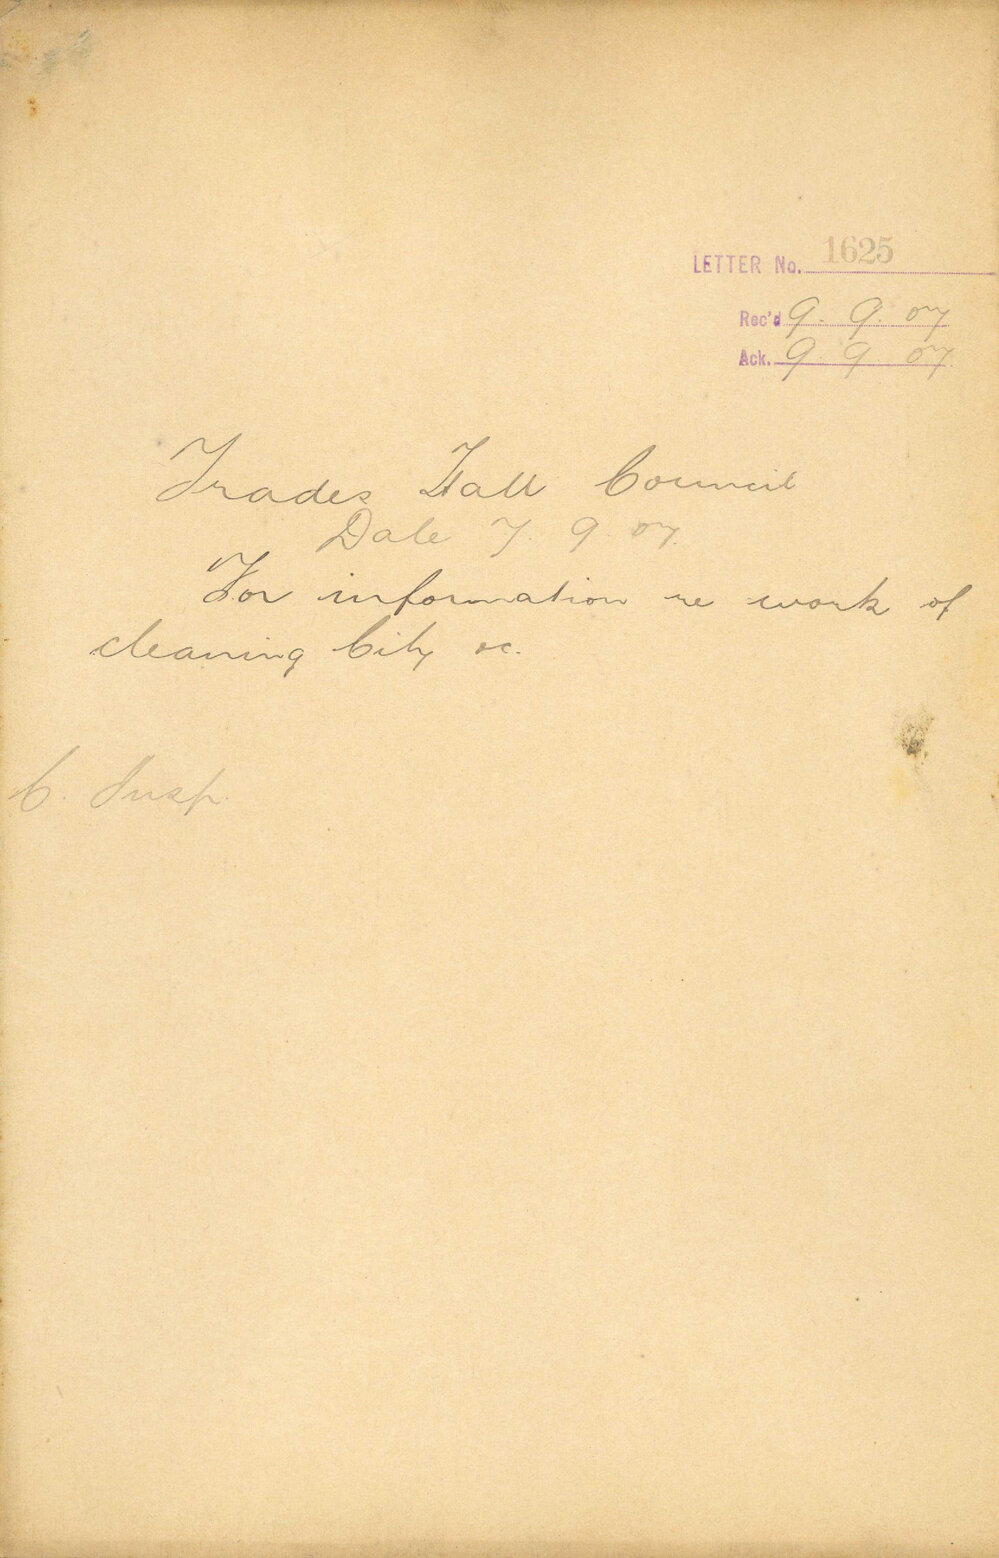 LETTER No. 1625
Rec'd 9. 9. 07
Ack. 9 9 07
Trades Hall Council
Date 7. 9. 07.
For information re work of
cleaning City &c.
C. Insp.